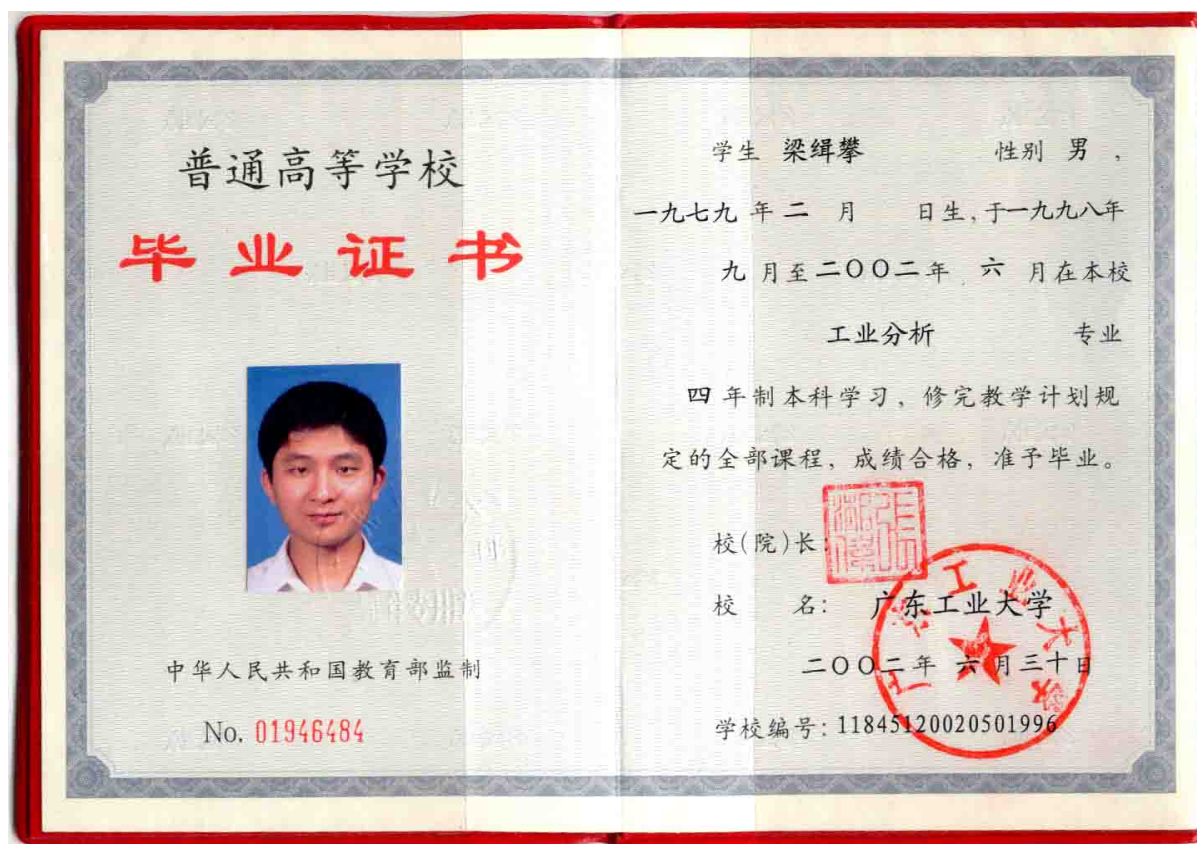 普通高等学校
毕业证书
中华人民共和国教育部监制
No. 01946484
学生 梁缉攀 性别 男 ,
一九七九 年 二 月 日生,于一九九八年
九 月至二〇〇二年 六 月在本校
工业分析 专业
四 年制本科学习，修完教学计划规
定的全部课程，成绩合格，准予毕业。
校(院)长
校 名: 广东工业大学
二〇〇二年 六月三十日
学校编号: 118451200205019​96
广东工业大学